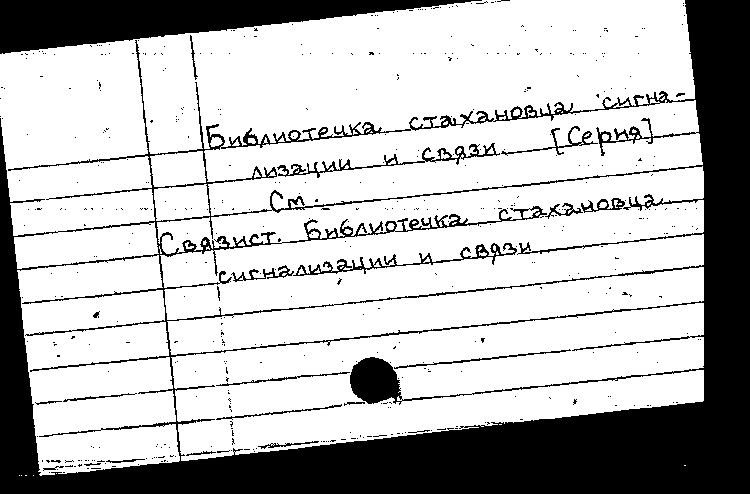 Библиотечка стахановца сигна-
лизации и связи. [Серия]
См.
Связист. Библиотечка стахановца
сигнализации и связи